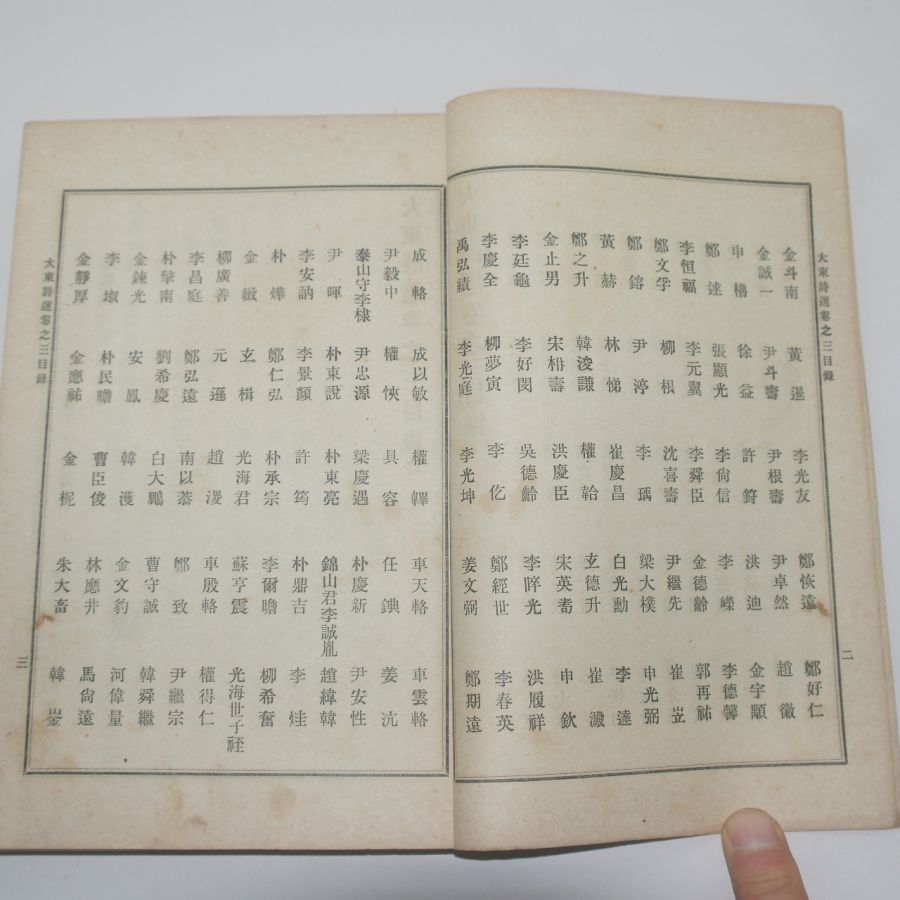 大東詩選卷之三目錄 二
金斗南 黃暹 李光友 鄭恢遠 鄭好仁
金誠一 尹斗壽 尹根壽 尹卓然 趙徽
申櫓 徐益 許篈 洪迪 金宇顒
鄭逑 張顯光 李尙信 李嶸 李德馨
李恒福 李元翼 李舜臣 金德齡 郭再祐
鄭文孚 柳根 沈喜壽 尹繼先 崔岦
鄭鎔 尹渟 李瑀 梁大樸 申光弼
黃赫 林悌 崔慶昌 白光勳 李達
鄭之升 韓浚謙 權韐 玄德升 崔澱
金止男 宋柟壽 洪慶臣 宋英耉 申欽
李廷龜 李好閔 吳德齡 李睟光 洪履祥
李慶全 柳夢寅 李仡 鄭經世 李春英
禹弘績 李光庭 李光坤 姜文弼 鄭期遠
成輅 成以敏 權韠 車天輅 車雲輅
尹毅中 權悏 具容 任錪 姜沆
泰山守李棣 尹忠源 梁慶遇 朴慶新 尹安性
尹暉 朴東說 朴東亮 錦山君李誠胤 趙緯韓
李安訥 李景顔 許筠 朴鼎吉 李
朴燁 鄭仁弘 朴承宗 李爾瞻 柳希奮
金緻 玄楫 光海君 蘇亨震 光海世子祬
柳廣善 元遜 趙 車殷輅 權得仁
李昌庭 鄭弘遠 南以恭 鄭致 尹繼宗
朴擎南 劉希慶 白大鵬 曹守誠 韓舜繼
金鍊光 安鳳 韓濩 金文豹 河偉量
李埱 朴民瞻 曹臣俊 林應井 馬尙遠
金靜厚 金應祐 金柅 朱大畜 韓崟
大東詩選卷之三目錄 三